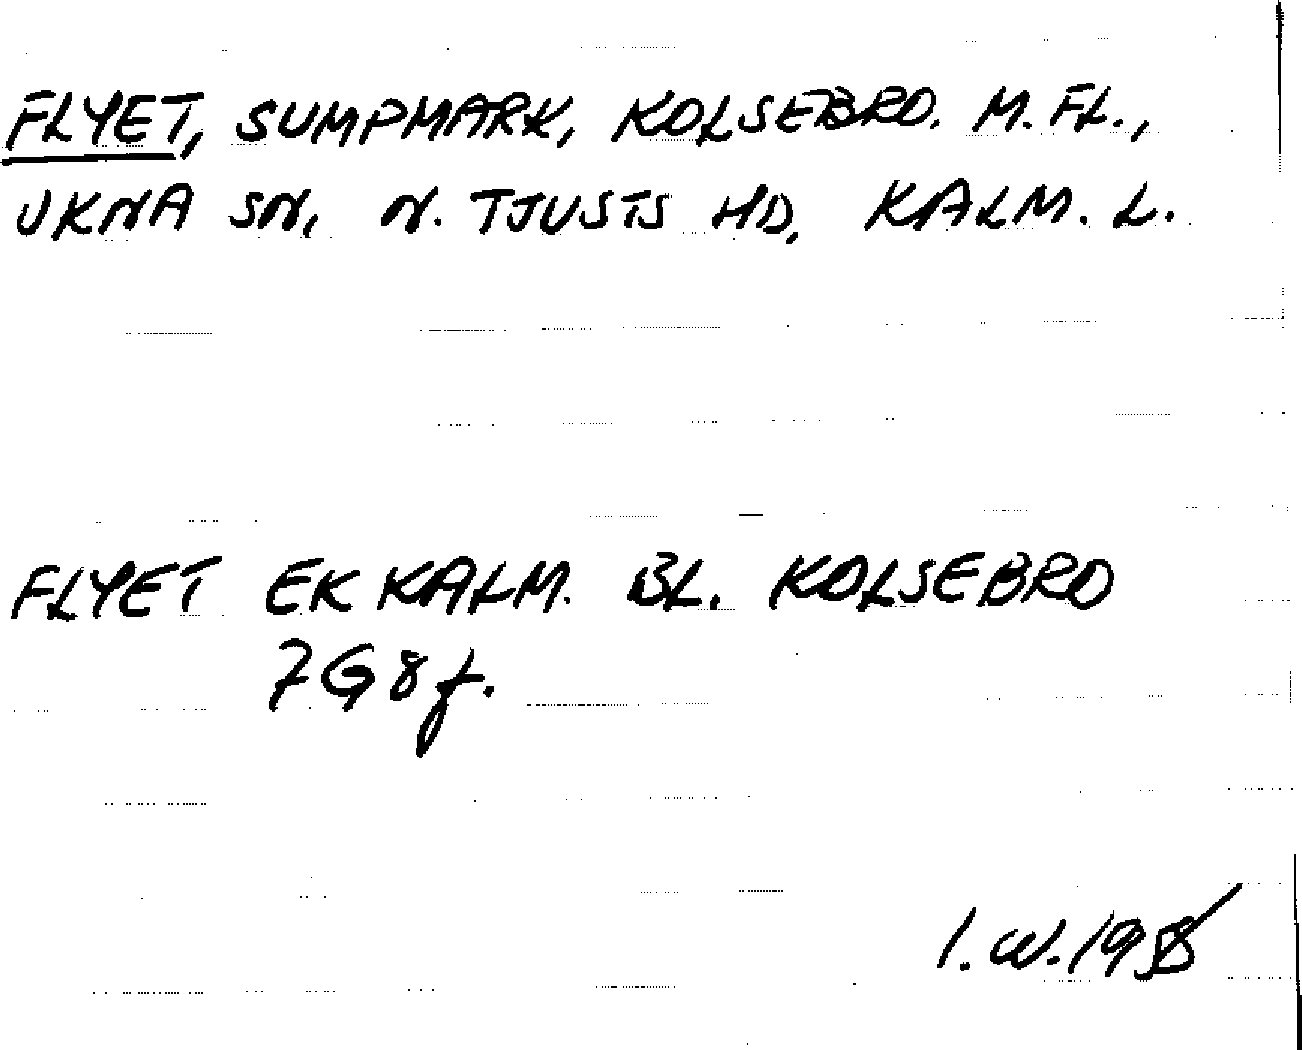 FLYET, SUMPMARK, KOLSEBRO. M.FL.,
UKNA SN, N. TJUSTS HD, KALM. L.
FLYET EK KALM. BL. KOLSEBRO
7G8f.
I.W.